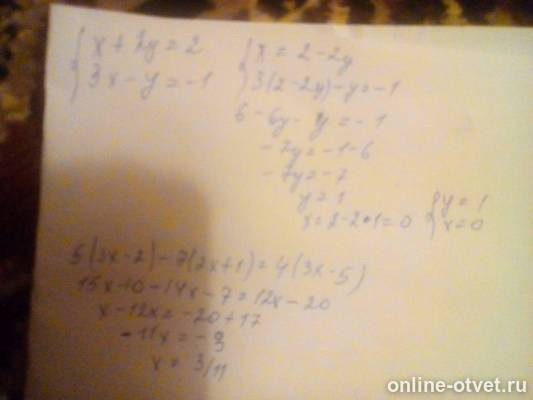 { x + 2y = 2
3x - y = -1
{ x = 2 - 2y
3(2 - 2y) - y = -1
6 - 6y - y = -1
-7y = -1 - 6
-7y = -7
y = 1
x = 2 - 2•1 = 0
{ y = 1
x = 0
5(3x - 2) - 7(2x + 1) = 4(3x - 5)
15x - 10 - 14x - 7 = 12x - 20
x - 12x = -20 + 17
-11x = -3
x = 3/11
online-otvet.ru